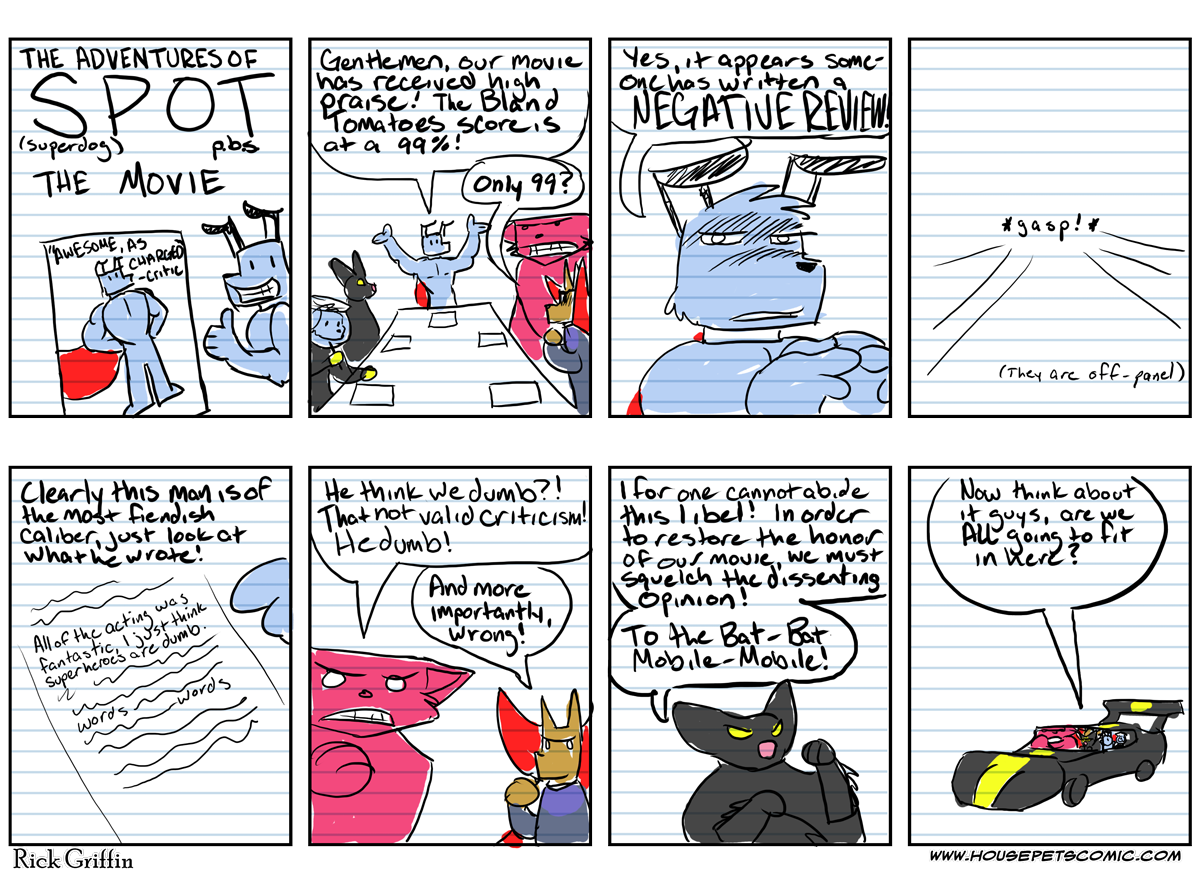 THE ADVENTURES OF
SPOT
(superdog) p.b.s
THE MOVIE
"AWESOME, AS
CHARGED"
-critic
Gentlemen, our movie
has received high
praise! The Bland
Tomatoes score is
at a 99%!
Only 99?
Yes, it appears some-
one has written a
NEGATIVE REVIEW!
*gasp!*
(They are off-panel)
Clearly this man is of
the most fiendish
caliber, just look at
what he wrote!
All of the acting was
fantastic, I just think
superheroes are dumb.
words words
He think we dumb?!
That not valid criticism!
He dumb!
And more
importantly,
wrong!
I for one cannot abide
this libel! In order
to restore the honor
of our movie, we must
squelch the dissenting
opinion!
To the Bat-Bat
Mobile-Mobile!
Now think about
it guys, are we
All going to fit
in here?
Rick Griffin
WWW.HOUSEPETSCOMIC.COM